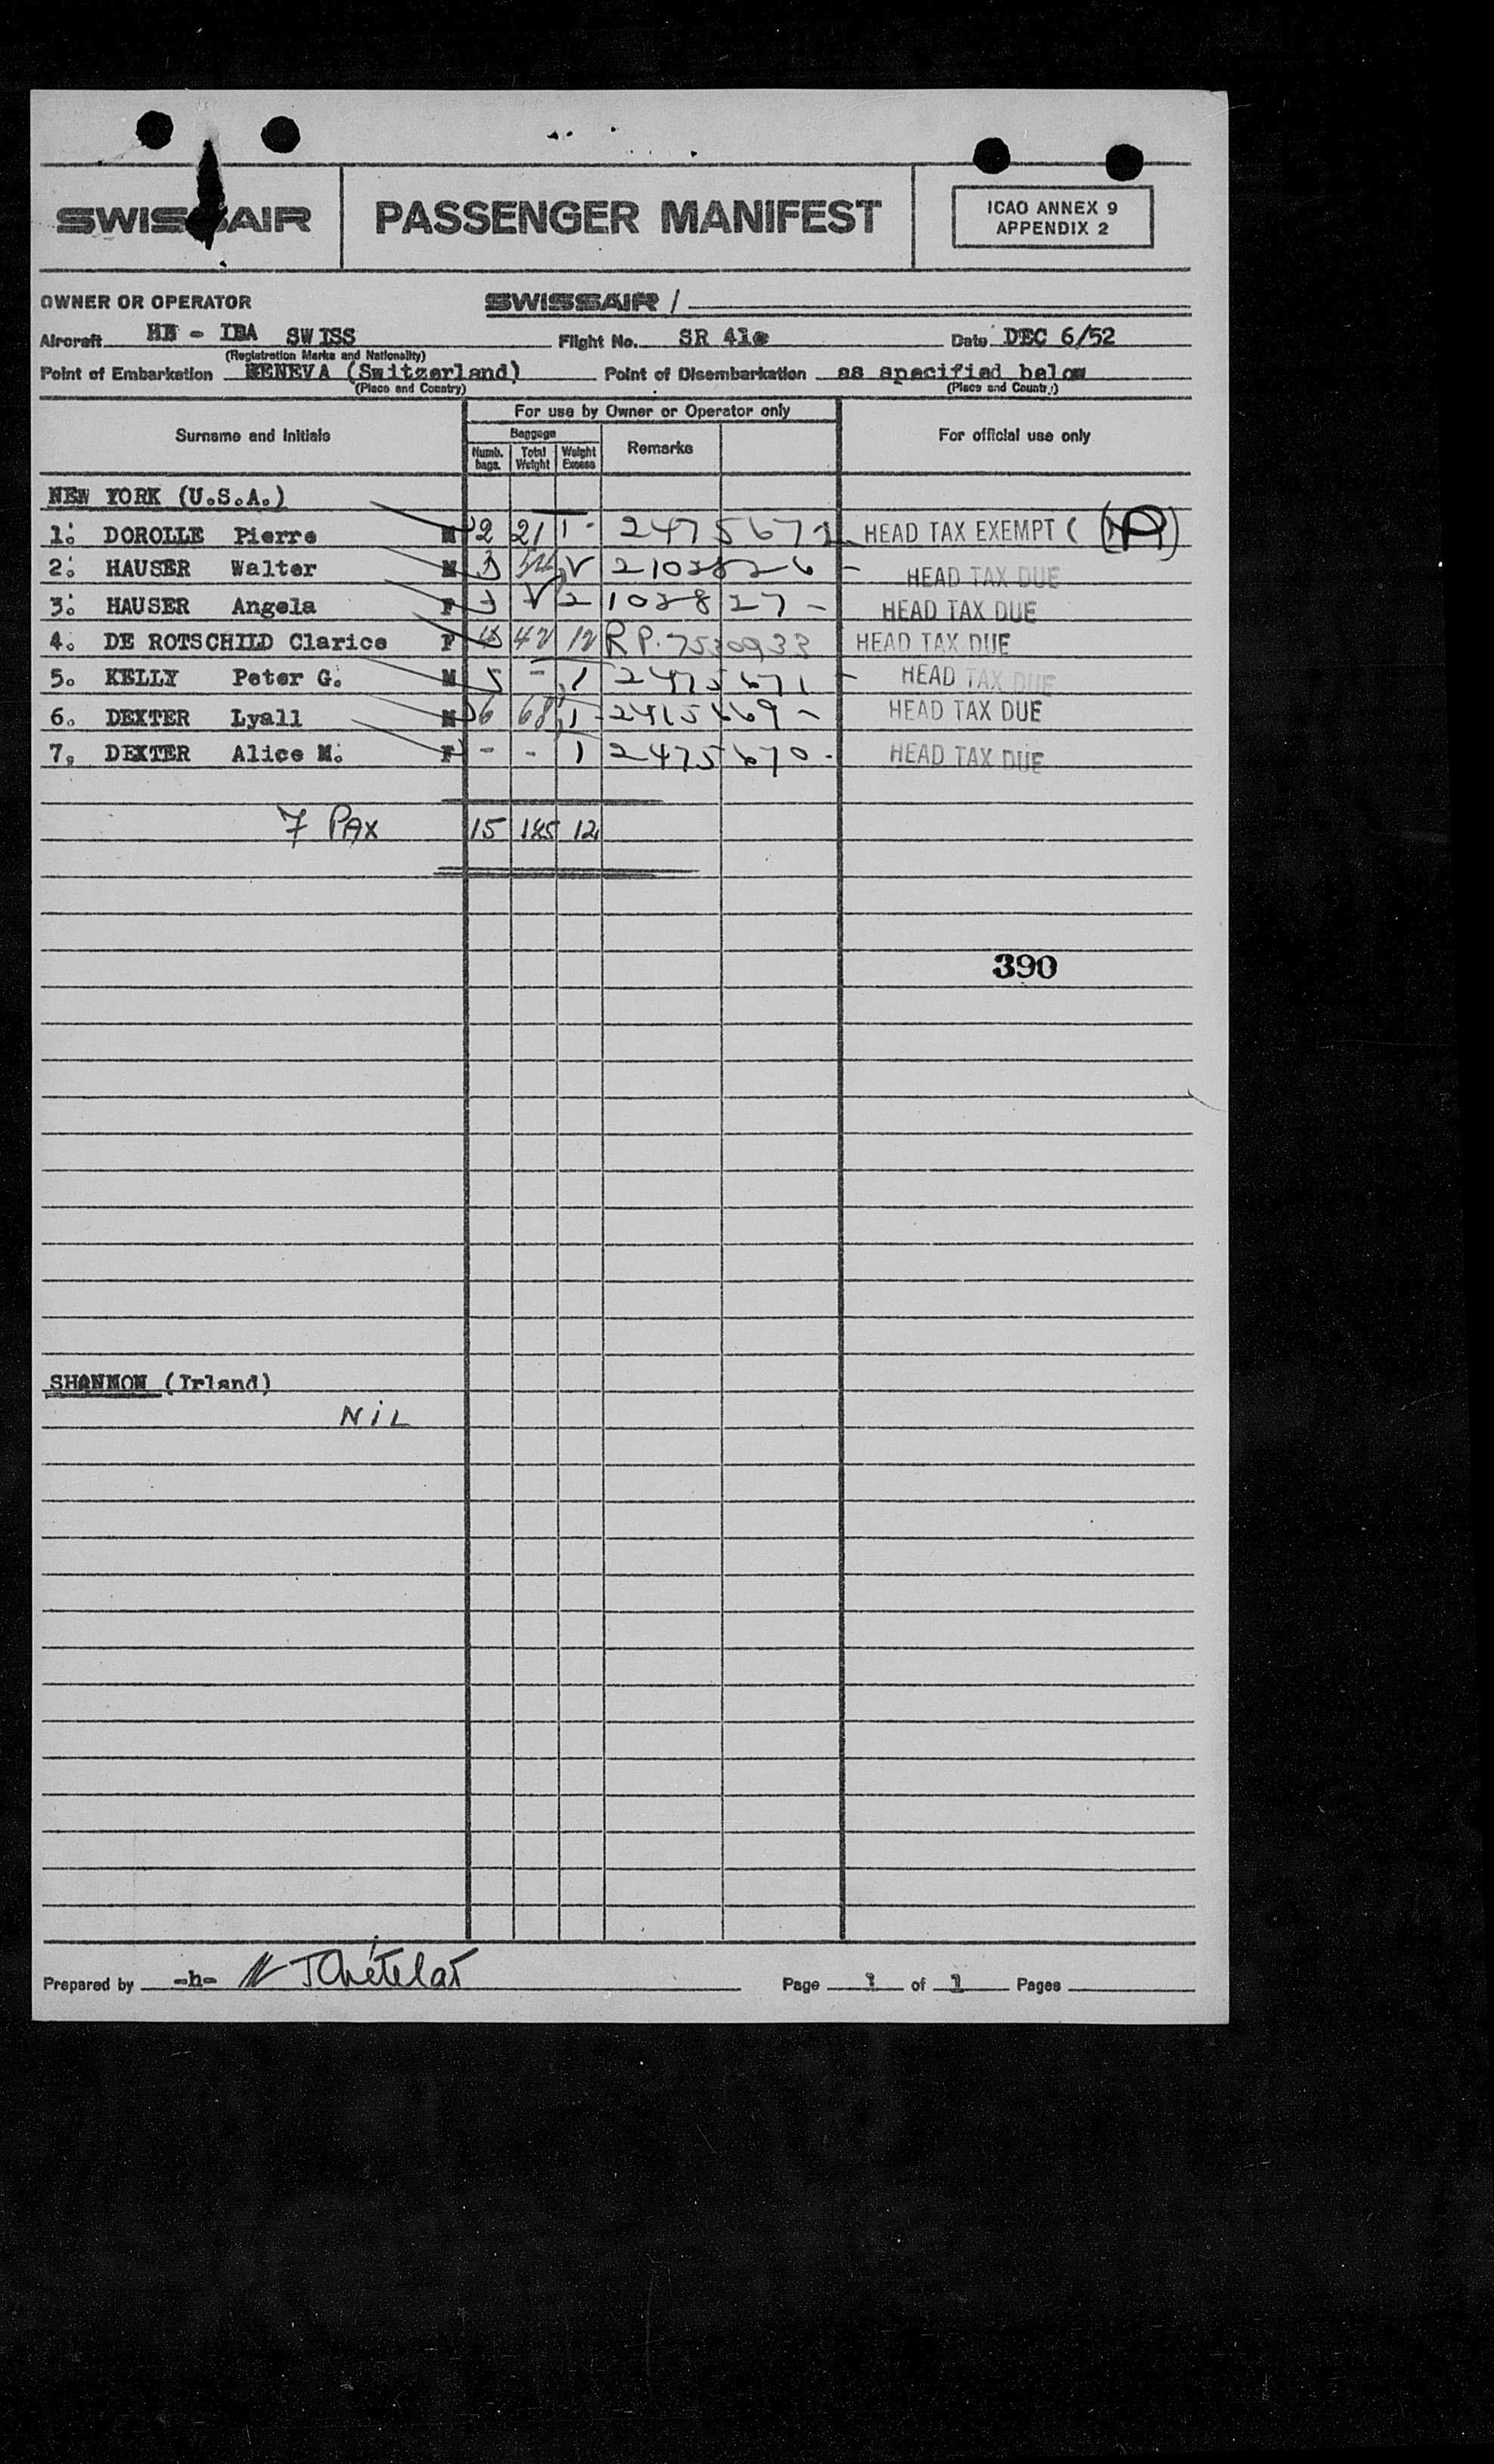 SWISSAIR
PASSENGER MANIFEST
ICAO ANNEX 9
APPENDIX 2
OWNER OR OPERATOR SWISSAIR /
Aircraft HB - IBA SWISS Flight No. SR 41 Date DEC 6/52
(Registration Marks and Nationality)
Point of Embarkation GENEVA (Switzerland) Point of Disembarkation as specified below
(Place and Country) (Place and Country)
Surname and Initials
For use by Owner or Operator only
Baggage
Numb. bags. Total Weight Weight Excess
Remarks
For official use only
NEW YORK (U.S.A.)
1. DOROLLE Pierre M 2 21 HEAD TAX EXEMPT
2. HAUSER Walter M 2102826 HEAD TAX DUE
3. HAUSER Angela F HEAD TAX DUE
4. DE ROTSCHILD Clarice F 42 12 R.P. 7530933 HEAD TAX DUE
5. KELLY Peter G. M 2475671 HEAD TAX DUE
6. DEXTER Lyall M 6 68 HEAD TAX DUE
7. DEXTER Alice M. F - - 2475670 - HEAD TAX DUE
7 PAX 15 185 12
390
SHANNON (Irland)
NIL
Prepared by -h- Page 1 of 1 Pages